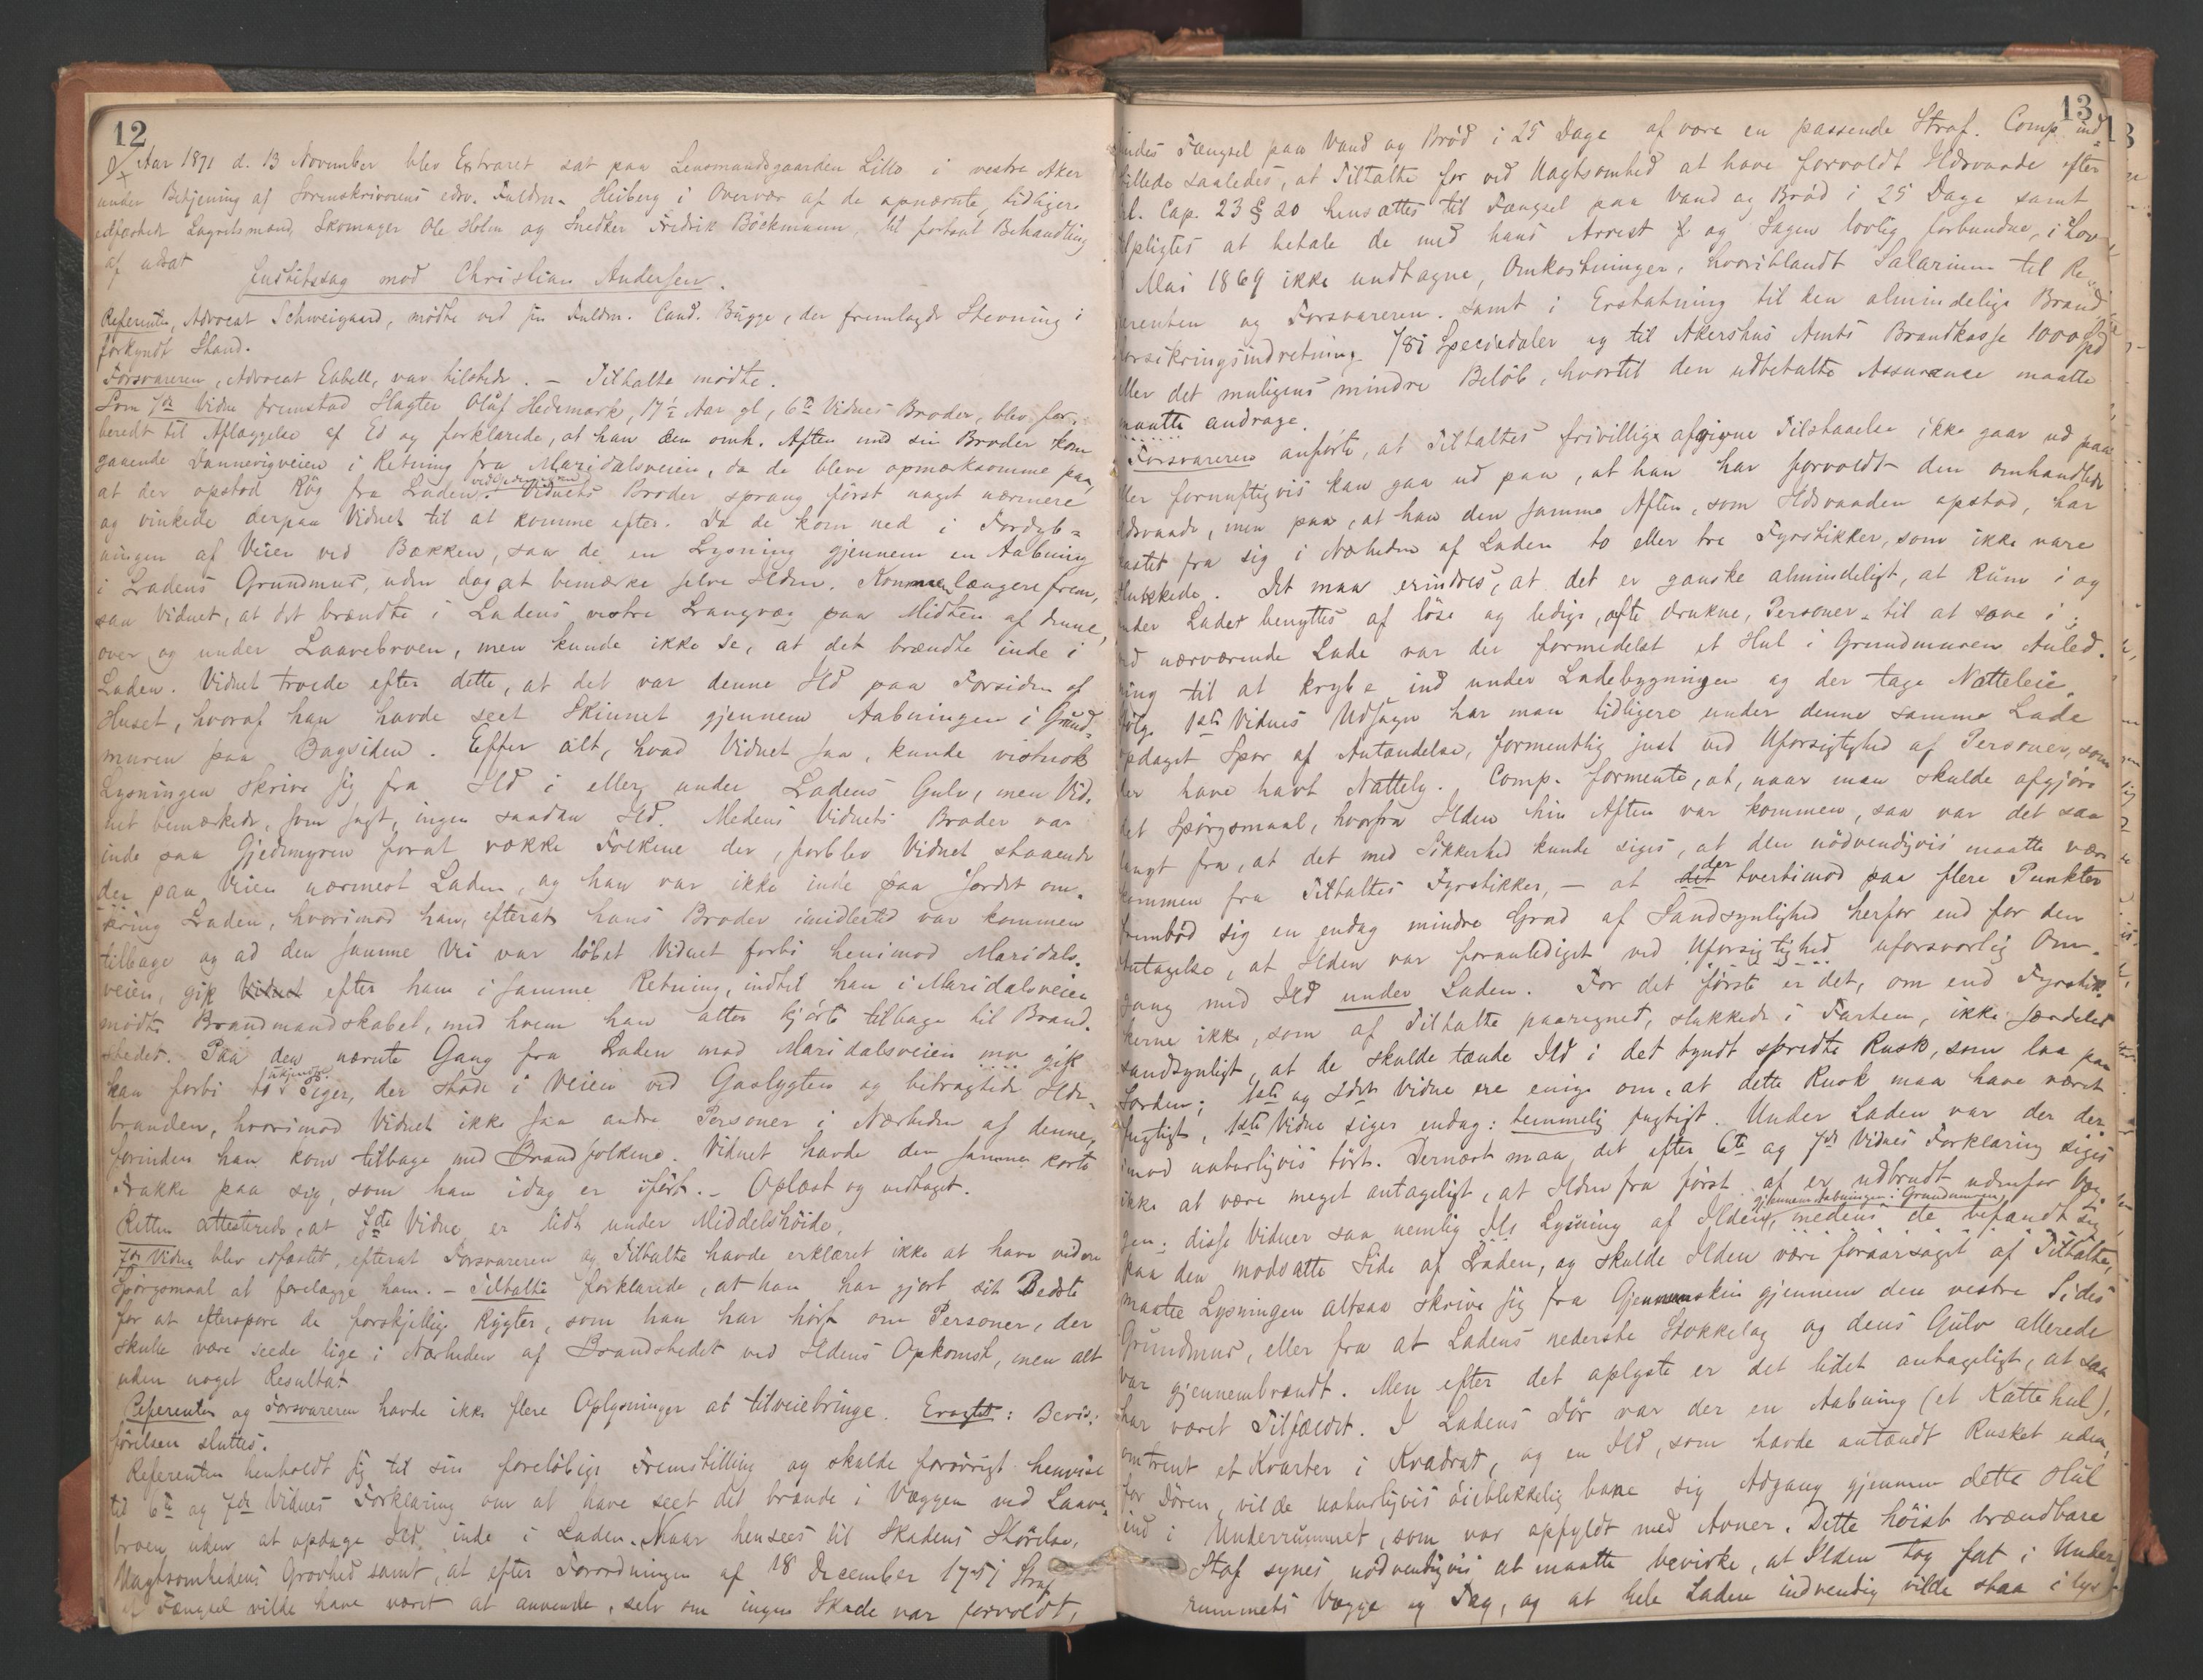 12
Aar 1871 d. 13 November blev Extraret sat paa Lensmandsgaarden Lillo i vestre Aker
under Betjening af Sorenskriverens edsv. Fuldm. Heiberg i Overvær af de opnævnte, tidligere
edfæstede Lagretsmænd, Skomager Ole Holm og Snedker Fredrik Böckmann, til fortsat Behandling
af udsat
Justitssag mod Christian Andersen.
Referenten, Advocat Schweigaard, mødte ved sin Fuldm. Cand. Bugge, der fremlagde Stevning i
forkyndt Stand.
Forsvareren, Advocat Eubell, var tilstede. – Tiltalte mødte.
Som 7de Vidne fremstod Slagter Oluf Hedemark, 17½ Aar gl, 6te Vidnes Broder, blev for-
beredt til Aflæggelse af Ed og forklarede, at han den omh. Aften med sin Broder kom
gaaende Dannevigveien i Retning fra Maridalsveien, da de bleve opmærksomme paa,
at der opstod Røg fra Laden. Vidnets Broder sprang først noget nærmere
og vinkede derpaa Vidnet til at komme efter. Da de kom ned i Fordyb-
ningen af Veien ved Bækken, saa de en Lysning gjennem en Aabning
i Ladens Grundmur, uden dog at bemærke selve Ilden. Kommen længere frem,
saa Vidnet, at det brændte i Ladens vestre Langvæg paa Midten af denne,
over og under Laavebroen, men kunde ikke se, at det brændte inde i
Laden. Vidnet troede efter dette, at det var denne Ild paa Forsiden af
Huset, hvoraf han havde seet Skinnet gjennem Aabningen i Grund-
muren paa Bagsiden. Efter alt, hvad Vidnet saa, kunde vistnok
Lysningen skrive sig fra Ild i eller under Ladens Gulv, men Vid-
net bemærkede, som sagt, ingen saadan Ild. Medens Vidnets Broder var
inde paa Gjedemyren forat vække Folkene der, forblev Vidnet staaende
der paa Veien nærmest Laden, og han var ikke inde paa Jordet om-
kring Laden, hvorimod han, efterat hans Broder imidlertid var kommen
tilbage og ad den samme Vei var løbet Vidnet forbi henimod Maridals-
veien, gik Vidnet efter ham i samme Retning, indtil han i Maridalsveien
mødte Brandmandskabet, med hvem han atter kjørte tilbage til Brand-
stedet. Paa den nævnte Gang fra Laden mod Maridalsveien gik
ukjendte
han forbi to Piger, der stode i Veien ved Gaslygten og betragtede Ilde-
branden, hvorimod Vidnet ikke saa andre Personer i Nærheden af denne,
forinden han kom tilbage med Brandfolkene. Vidnet havde den samme korte
Frakke paa sig, som han idag er iført. – Oplæst og vedtaget.
Retten attesterede, at 7de Vidne er lidt under Middelshøide.
7de Vidne blev edfæstet, efterat Forsvareren og Tiltalte havde erklæret ikke at have videre
Spørgsmaal at forelægge ham. – Tiltalte forklarede, at han har gjort sit Bedste
for at efterspore de forskjellige Rygter, som han har hørt om Personer, der
skulle være seede lige i Nærheden af Brandstedet ved Ildens Opkomst, men alt
uden noget Resultat.
Referenten og Forsvareren havde ikke flere Oplysninger at tilveiebringe. Eragtet: Bevis-
førelsen sluttes.
Referenten henholdt sig til sin foreløbige Fremstilling og skulde forøvrigt henvise
til 6te og 7de Vidnes Forklaring om at have seet det brænde i Væggen ved Laave-
broen uden at opdage Ild inde i Laden. Naar hensees til Skadens Størrelse,
Uagtsomhedens Grovhed samt, at efter Forordningen af 18 December 1751 Straf
af Fængsel vilde have været at anvende, selv om ingen Skade var forvoldt,
13
findes Fængsel paa Vand og Brød i 25 Dage af være en passende Straf. Comp. ind-
stillede saaledes, at Tiltalte for ved Uagtsomhed at have forvoldt Ildsvaade efter
Cap. 23 § 20 hensættes til Fængsel paa Vand og Brød i 25 Dage samt
tilpligtes at betale de med hans Arrest og Sagen lovlig forbundne, i Lov
Mai 1869 ikke undtagne, Omkostninger, hvoriblandt Salarium til Re-
ferenten og Forsvareren. samt i Erstatning til den almindelige Brand-
forsikringsindretning 781 Speciedaler og til Akershus Amts Brandkasse 1000 Spd
eller det muligens mindre Beløb, hvortil den udbetalte Assurance maatte
maatte andrage.
Forsvareren anførte, at Tiltaltes frivillige afgivne Tilstaaelse ikke gaar ud paa
eller fornuftigvis kan gaa ud paa, at han har forvoldt den omhandlede
Ildsvaade, men paa, at han den samme Aften, som Ildsvaaden opstod, har
kastet fra sig i Nærheden af Laden to eller tre Fyrstikker, som ikke vare
slukkede. Det maa erindres, at det er ganske almindeligt, at Rum i og
under Lader benyttes af løse og ledige, ofte drukne, Personer til at sove i;
ved nærværende Lade var der formedelst et Hul i Grundmuren Anled-
ning til at krybe ind under Ladebygningen og der tage Natteleie.
Ifølge 1ste Vidnes Udsagn har man tidligere under denne samme Lade
opdaget Spor af Antændelse, formentlig just ved Uforsigtighed af Personer, som
der have havt Nattely. Comp. formente, at, naar man skulde afgjøre
det Spørgsmaal, hvorfra Ilden hin Aften var kommen, saa var det saa
langt fra, at det med Sikkerhed kunde siges, at den nødvendigvis maatte være
kommen fra Tiltaltes Fyrstikker, – at det der tvertimod paa flere Punkter
frembød sig en endog mindre Grad af Sandsynlighed herfor end for den
Antagelse, at Ilden var foranlediget ved Uforsigtighed uforsvarlig Om-
gang med Ild under Laden. For det første er det, om end Fyrstik-
kerne ikke, som af Tiltalte paaregnet, slukkede i Farten, ikke særdeles
sandsynligt, at de skulde tænde Ild i det tyndt spredte Rusk, som laa paa
Jorden; 1ste og 2det Vidne ere enige om, at dette Rusk maa have været
fugtigt, 1ste Vidne siger endog: temmelig fugtigt. Under Laden var der der-
imod naturligvis tørt. Dernæst maa det efter 6te og 7de Vidnes Forklaring siges
ikke at være meget antageligt, at Ilden fra først af er udbrudt udenfor Væg-
gjennem Aabningen i Grundmuren
gen; disse Vidner saa nemlig Lysning af Ilden, medens de befandt sig
paa den modsatte Side af Laden, og skulde Ilden være foraarsaget af Tiltalte,
maatte Lysningen altsaa skrive sig fra Gjennemskin gjennem den vestre Sides
Grundmur, eller fra at Ladens nederste Stokkelag og dens Gulv allerede
var gjennembrændt. Men efter det oplyste er det lidet antageligt, at saa
har været Tilfældet. I Ladens Dør var der en Aabning (et Kattehul),
omtrent et Kvarter i Kvadrat, og en Ild, som havde antændt Rusket uden-
for Døren, vilde naturligvis øieblikkelig bane sig Adgang gjennem dette Hul
ind i Underrummet, som var opfyldt med Avner. Dette høist brændbare
Stof synes nødvendigvis at maatte bevirke, at Ilden tog fat i Under-
rummets Vægge og Tag, og at hele Laden indvendig vilde staa i lys